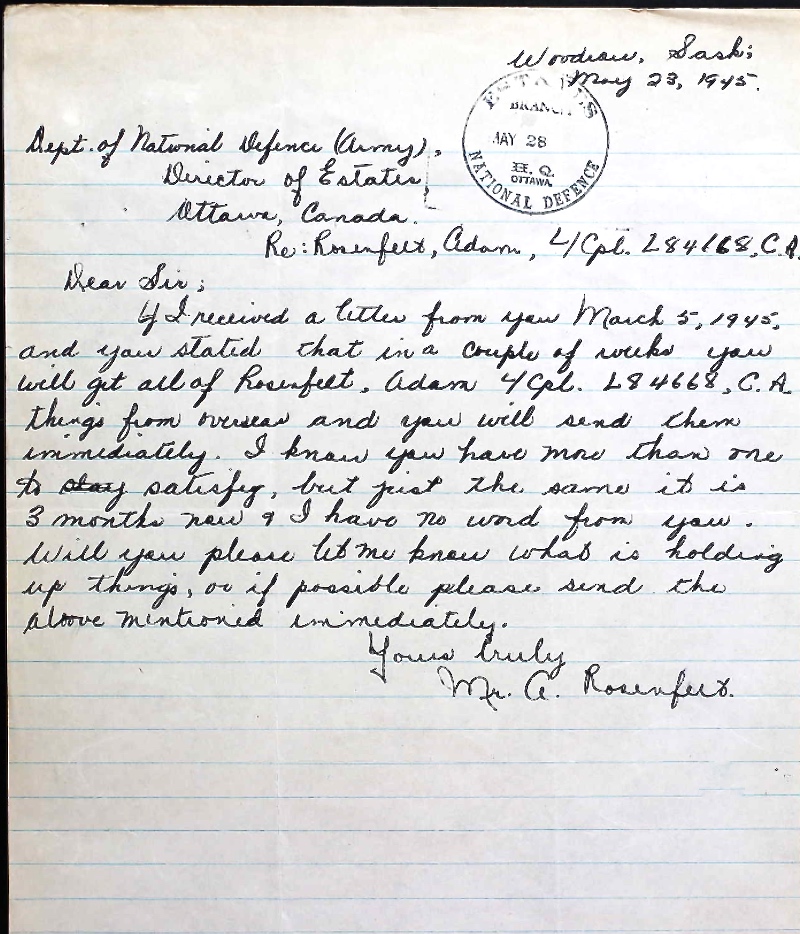 Woodrow, Sask;
May 23, 1945.
ESTATES
BRANCH
MAY 28
H. Q.
OTTAWA.
NATIONAL DEFENCE
Dept. of National Defence (Army),
Director of Estates,
Ottawa, Canada.
Re: Rosenfelt, Adam, L/Cpl. L84168, C.A.
Dear Sir;
I received a letter from you March 5, 1945,
and you stated that in a couple of weeks you
will get all of Rosenfelt, Adam L/Cpl. L84668, C.A.
things from overseas and you will send them
immediately. I know you have more than one
to stay satisfy, but just the same it is
3 months now & I have no word from you.
Will you please let me know what is holding
up things, or if possible please send the
above mentioned immediately.
Yours truly
Mr. A. Rosenfelt.